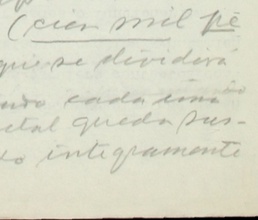 (cien mil pe
que se dividirá
ndo cada uni
etal queda sus-
to integramente